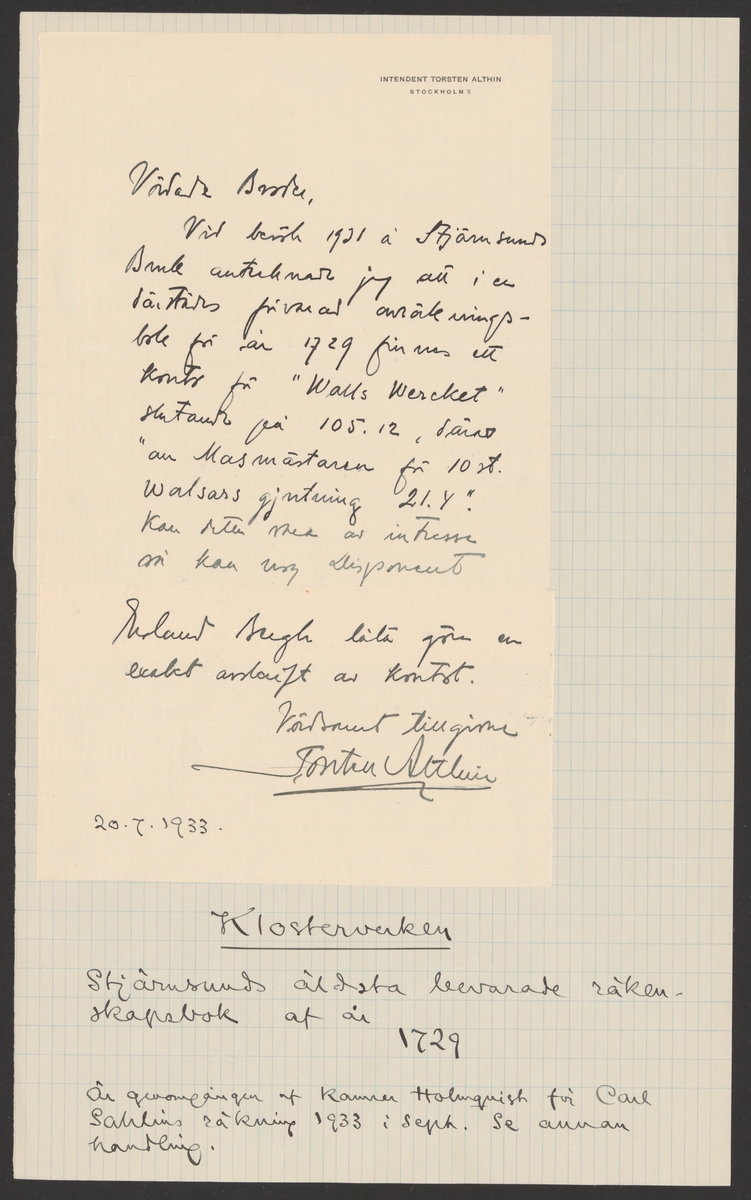 INTENDENT TORSTEN ALTHIN
STOCKHOLM 5
Vördade Broder,
Vid besök 1931 å Stjärnsunds
Bruk antecknade jag att i en
därstädes förvarad avräknings-
bok för år 1729 finnes ett
konto för "Walls Wercket"
slutande på 105.12, därav
"an Masmästaren för 10 st.
Walsars gjutning 21.4".
Kan detta vara av intresse
så kan nog Disponent
Erland Bergh låta göra en
exakt avskrift av kontot.
Vördsamt tillgivne
Torsten Althin
20.7.1933.
Klosterverken
Stjärnsunds äldsta bevarade räken-
skapsbok af år
1729
Är genomgången af Kamrer Holmquist för Carl
Sahlins räkning 1933 i Sept. Se annan
handling.